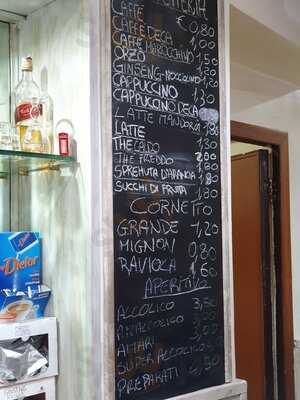 CAFFE € 0,80
CAFFE DECA 1,00
CAFFE MAROCCHINO 1,50
ORZO 1,20
GINSENG-NOCCIOLINO 1,20
CAPPUCCINO 1,30
CAPPUCCINO DECA
LATTE MANDORLA 1,80
LATTE
THE CALDO 1,30
THE FREDDO 2,00
SPREMUTA D'ARANCIA 1,80
SUCCHI DI FRUTTA 1,80
CORNETTO
GRANDE 1,20
MIGNON 0,80
RAVIOLA 1,60
APERITIVO
ALCOLICO 3,50
ANALCOLICO
ALTARI 3,00
SUPER ALCOLICO
PREPARATI 4,50
Dietor